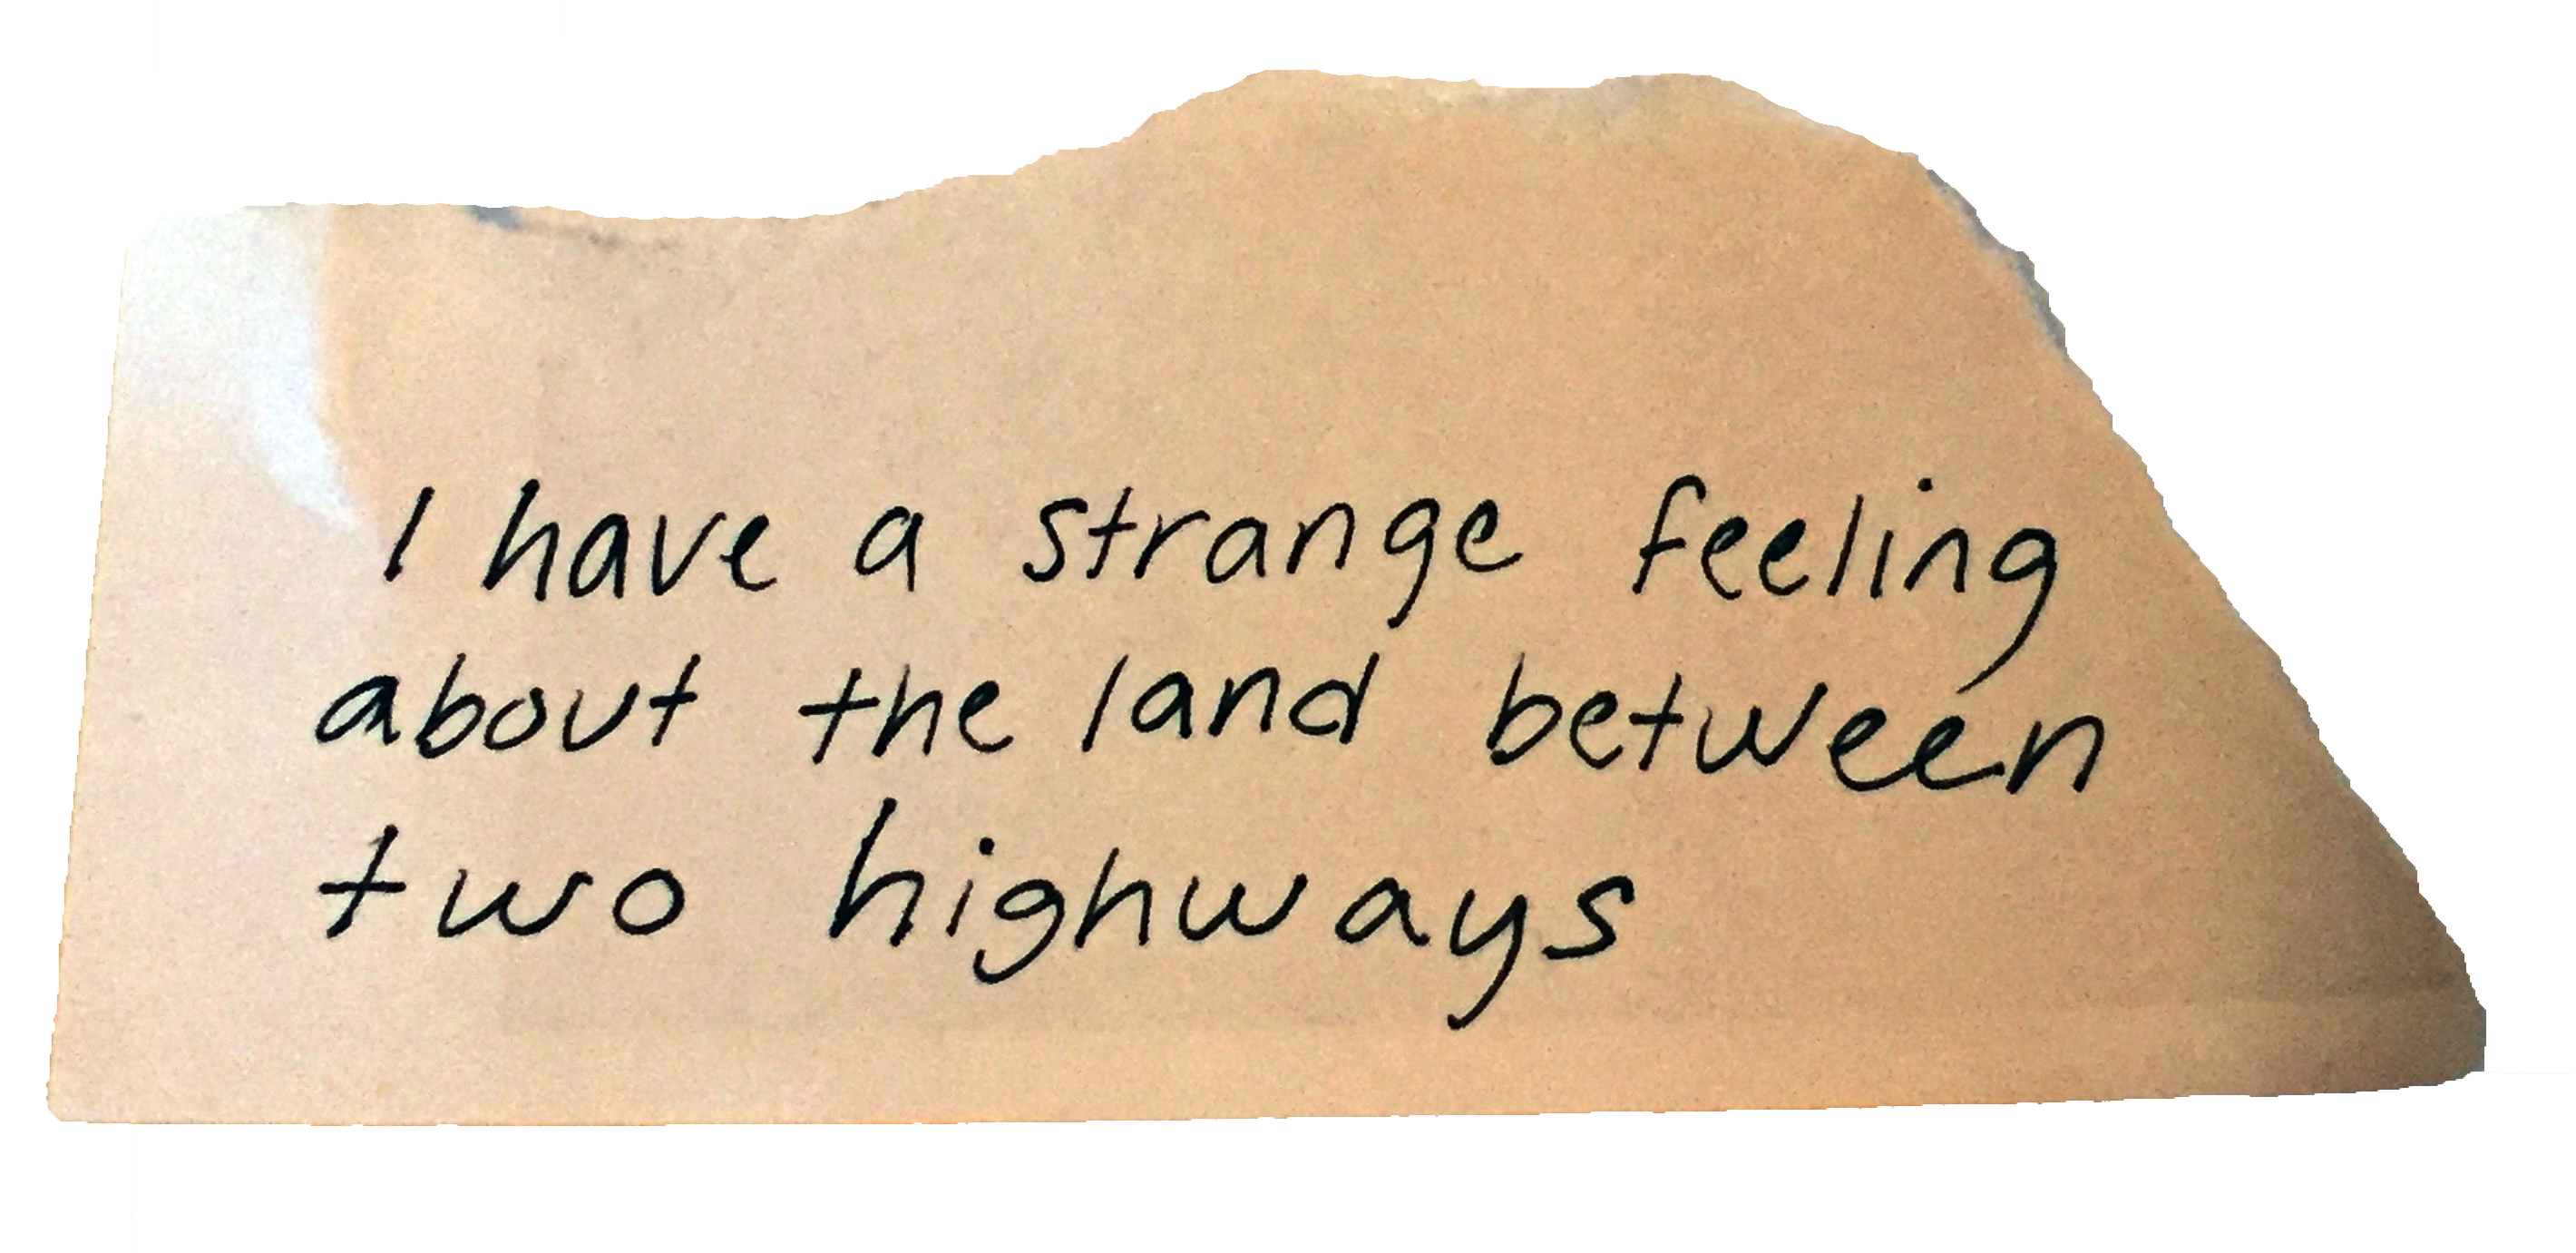 I have a strange feeling
about the land between
two highways